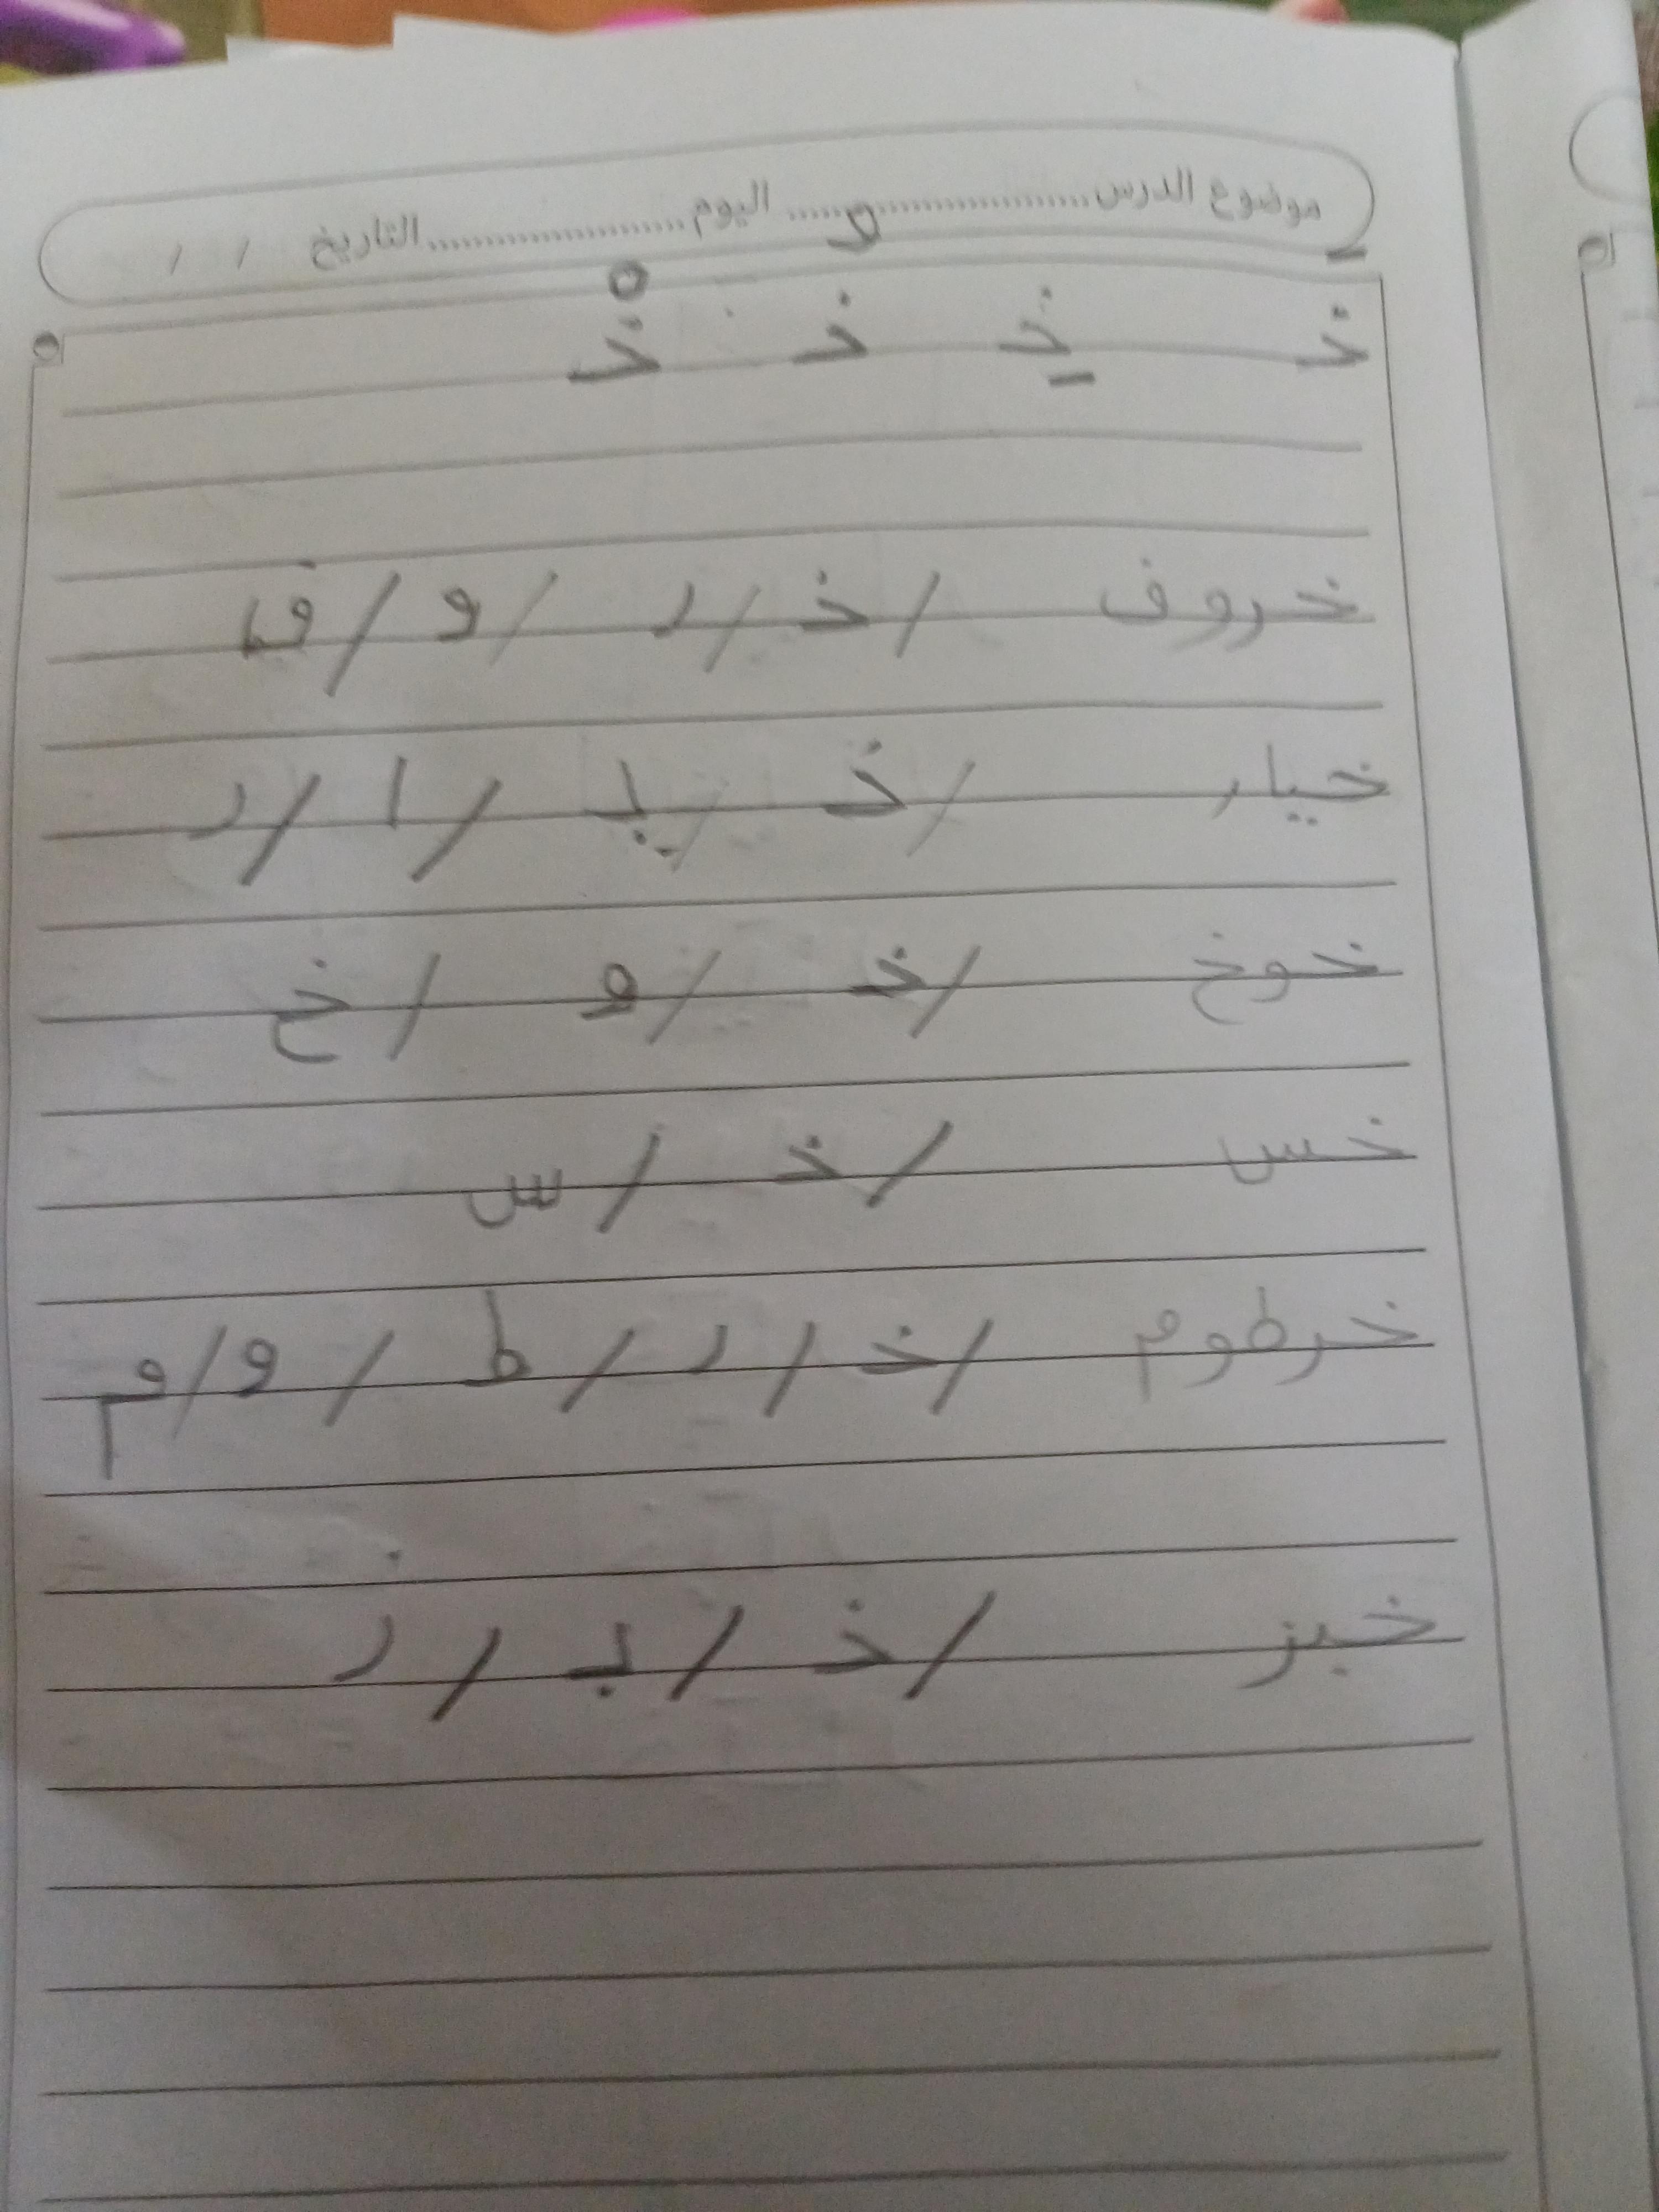 موضوع الدرس .................... اليوم .................... التاريخ / /
خَـ خِـ خُـ خْـ
خروف / خـ / ر / و / ف
خيار / خـ / يـ / ا / ر
خوخ / خـ / و / خ
خس / خـ / س
خرطوم / خـ / ر / ط / و / م
خبز / خـ / بـ / ز